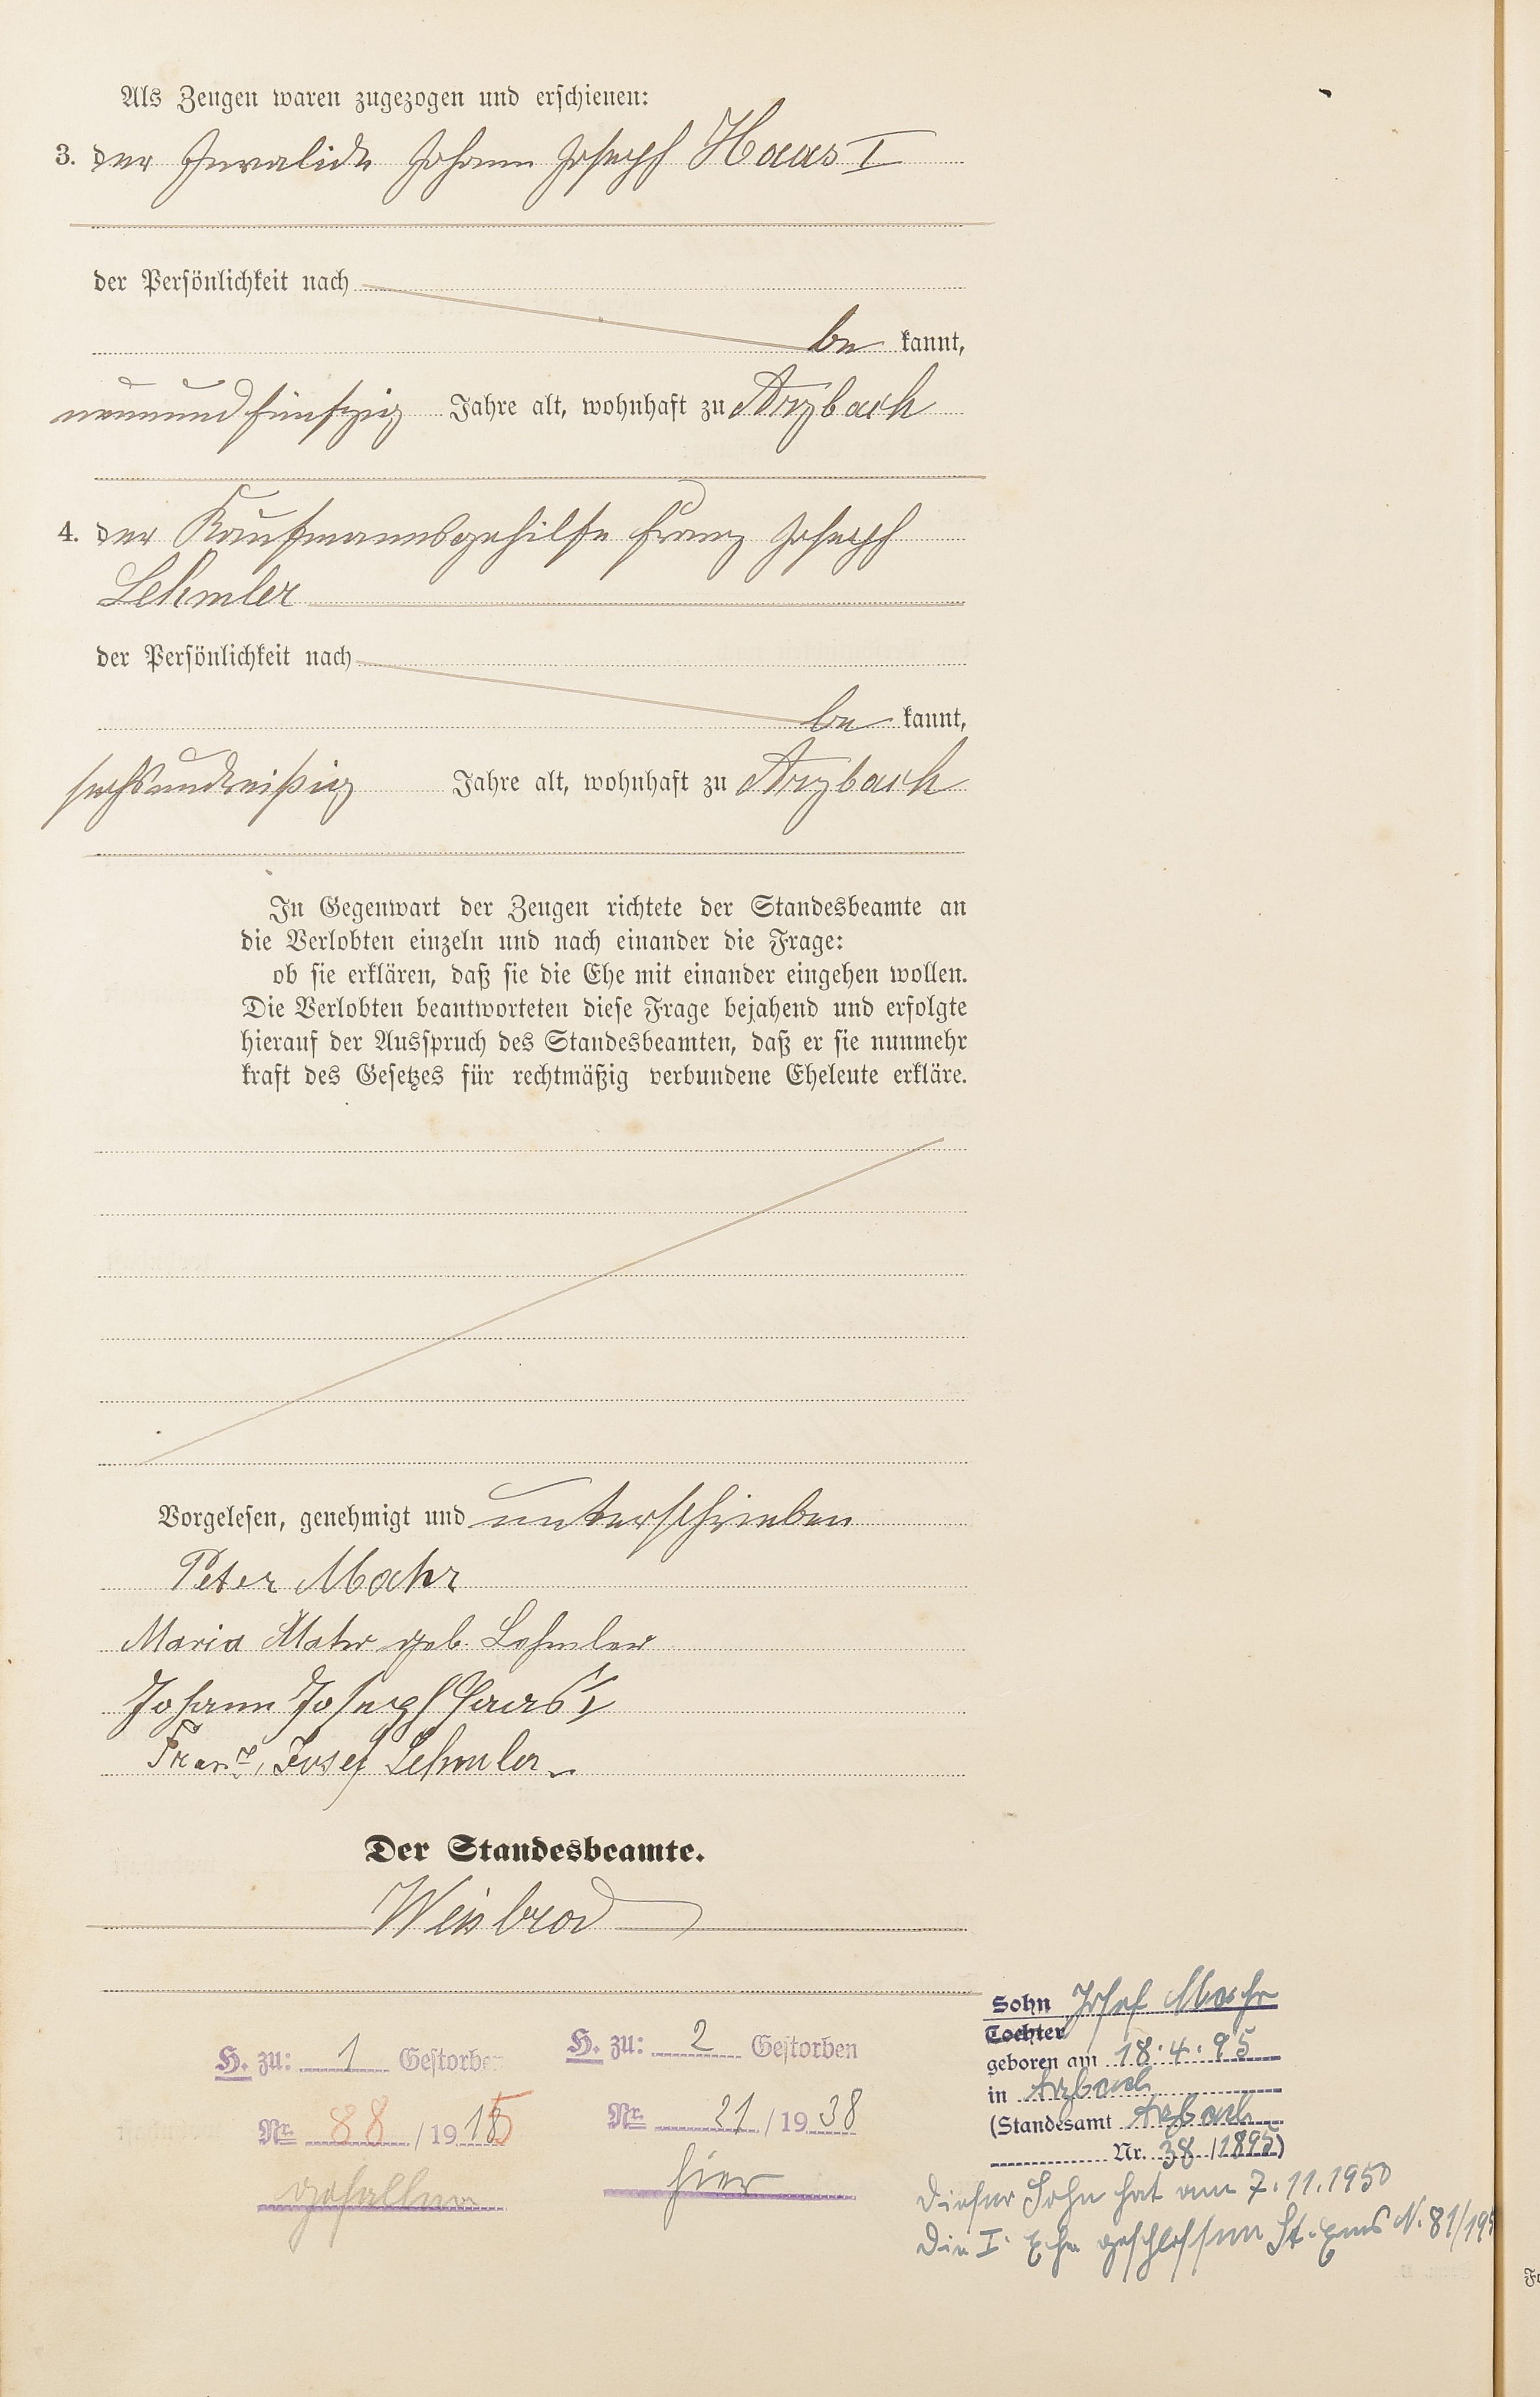 Als Zeugen waren zugezogen und erschienen:
3. der Invalide Johann Joseph Haas I
der Persönlichkeit nach
be kannt,
neunundfünfzig Jahre alt, wohnhaft zu Arzbach
4. der Kaufmannsgehilfe Franz Joseph
Lehmler
der Persönlichkeit nach
be kannt,
sechsunddreißig Jahre alt, wohnhaft zu Arzbach
In Gegenwart der Zeugen richtete der Standesbeamte an
die Verlobten einzeln und nach einander die Frage:
ob sie erklären, daß sie die Ehe mit einander eingehen wollen.
Die Verlobten beantworteten diese Frage bejahend und erfolgte
hierauf der Ausspruch des Standesbeamten, daß er sie nunmehr
kraft des Gesetzes für rechtmäßig verbundene Eheleute erkläre.
Vorgelesen, genehmigt und unterschrieben
Peter Mahr
Maria Mahr geb. Lehmler
Johann Joseph Haas I
Franz, Josef Lehmler
Der Standesbeamte.
Weisbrod
H. zu: 1 Gestorben
Nr. 88 / 1915
gefallen
H. zu: 2 Gestorben
Nr. 21 / 1938
hier
Sohn Josef Mahr
Tochter
geboren am 18.4.95
in Arzbach
(Standesamt Arzbach
Nr. 38 / 1895)
Dieser Sohn hat am 7.11.1950
die I. Ehe geschlossen St. Ems N. 81/195